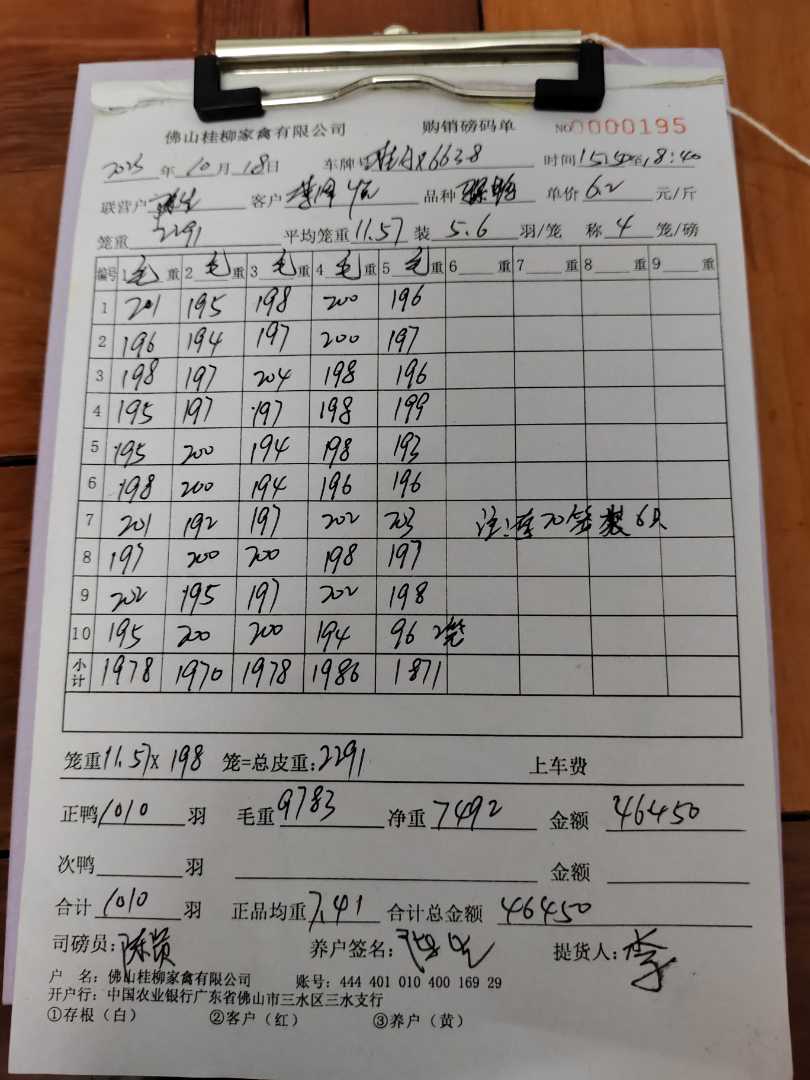 佛山桂柳家禽有限公司 购销磅码单 NO 0000195
2025年10月18日 车牌号桂AX6638 时间15:50至18:40
联营户 客户 品种 单价6.2元/斤
笼重2291 平均笼重11.57 装5.6羽/笼 称4笼/磅
编号 1毛重 2毛重 3毛重 4毛重 5毛重 6重 7重 8重 9重
1 201 195 198 200 196
2 196 194 197 200 197
3 198 197 204 198 196
4 195 197 197 198 199
5 195 200 194 198 193
6 198 200 194 196 196
7 201 192 197 202 203 注: 20笼装6只
8 197 200 200 198 197
9 202 195 197 202 198
10 195 200 200 194 96 2笼
小计 1978 1970 1978 1986 1871
笼重11.57X198笼=总皮重:2291 上车费
正鸭1010羽 毛重9783 净重7492 金额46450
次鸭 羽 金额
合计1010羽 正品均重7.41 合计总金额46450
司磅员:陈贤 养户签名: 提货人:李
户 名:佛山桂柳家禽有限公司 账号:444 401 010 400 169 29
开户行:中国农业银行广东省佛山市三水区三水支行
①存根(白) ②客户(红) ③养户(黄)